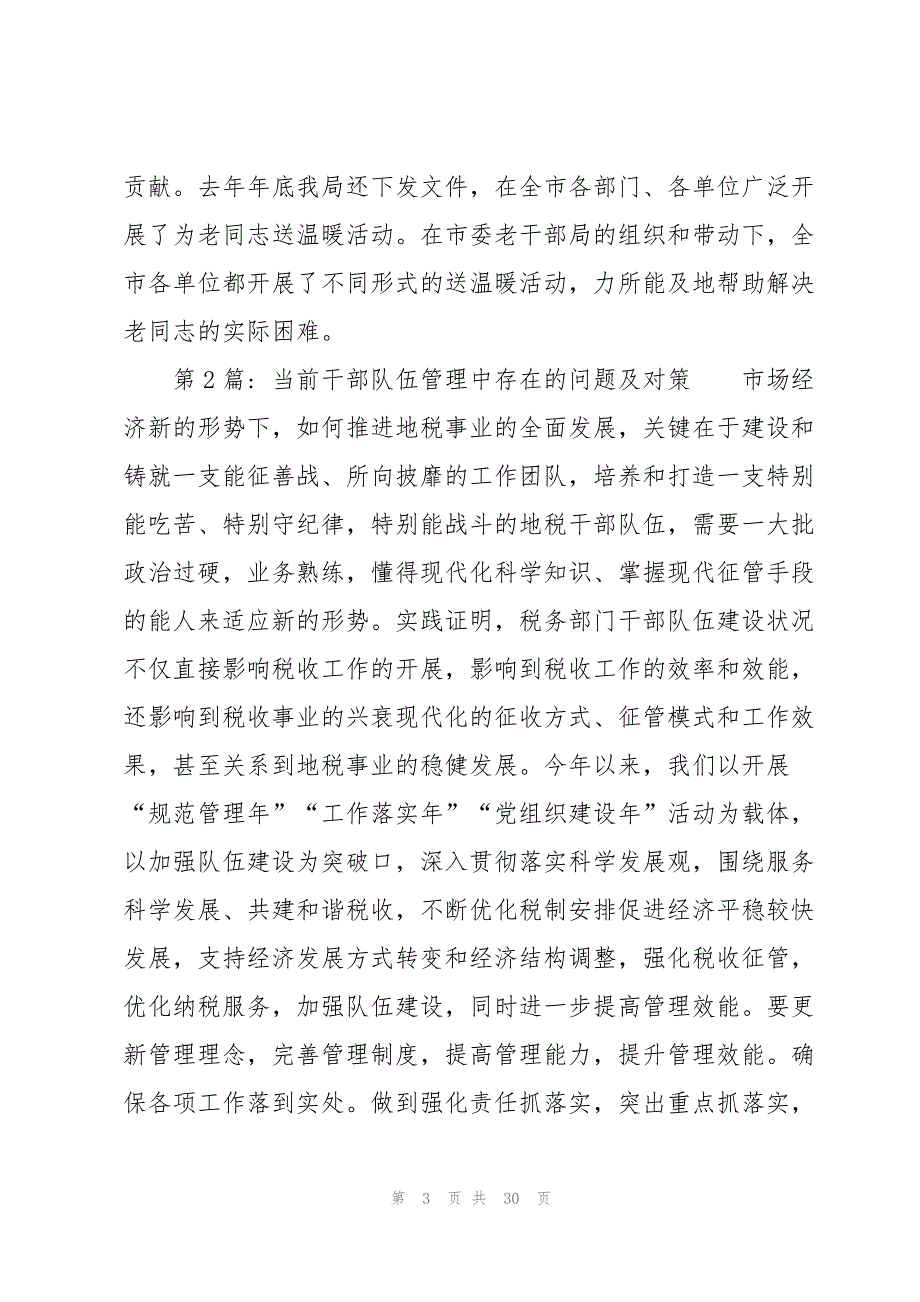 贡献。去年年底我局还下发文件，在全市各部门、各单位广泛开
展了为老同志送温暖活动。在市委老干部局的组织和带动下，全
市各单位都开展了不同形式的送温暖活动，力所能及地帮助解决
老同志的实际困难。
第2篇: 当前干部队伍管理中存在的问题及对策 市场经
济新的形势下，如何推进地税事业的全面发展，关键在于建设和
铸就一支能征善战、所向披靡的工作团队，培养和打造一支特别
能吃苦、特别守纪律，特别能战斗的地税干部队伍，需要一大批
政治过硬，业务熟练，懂得现代化科学知识、掌握现代征管手段
的能人来适应新的形势。实践证明，税务部门干部队伍建设状况
不仅直接影响税收工作的开展，影响到税收工作的效率和效能，
还影响到税收事业的兴衰现代化的征收方式、征管模式和工作效
果，甚至关系到地税事业的稳健发展。今年以来，我们以开展
“规范管理年”“工作落实年”“党组织建设年”活动为载体，
以加强队伍建设为突破口，深入贯彻落实科学发展观，围绕服务
科学发展、共建和谐税收，不断优化税制安排促进经济平稳较快
发展，支持经济发展方式转变和经济结构调整，强化税收征管，
优化纳税服务，加强队伍建设，同时进一步提高管理效能。要更
新管理理念，完善管理制度，提高管理能力，提升管理效能。确
保各项工作落到实处。做到强化责任抓落实，突出重点抓落实，
第 3 页 共 30 页